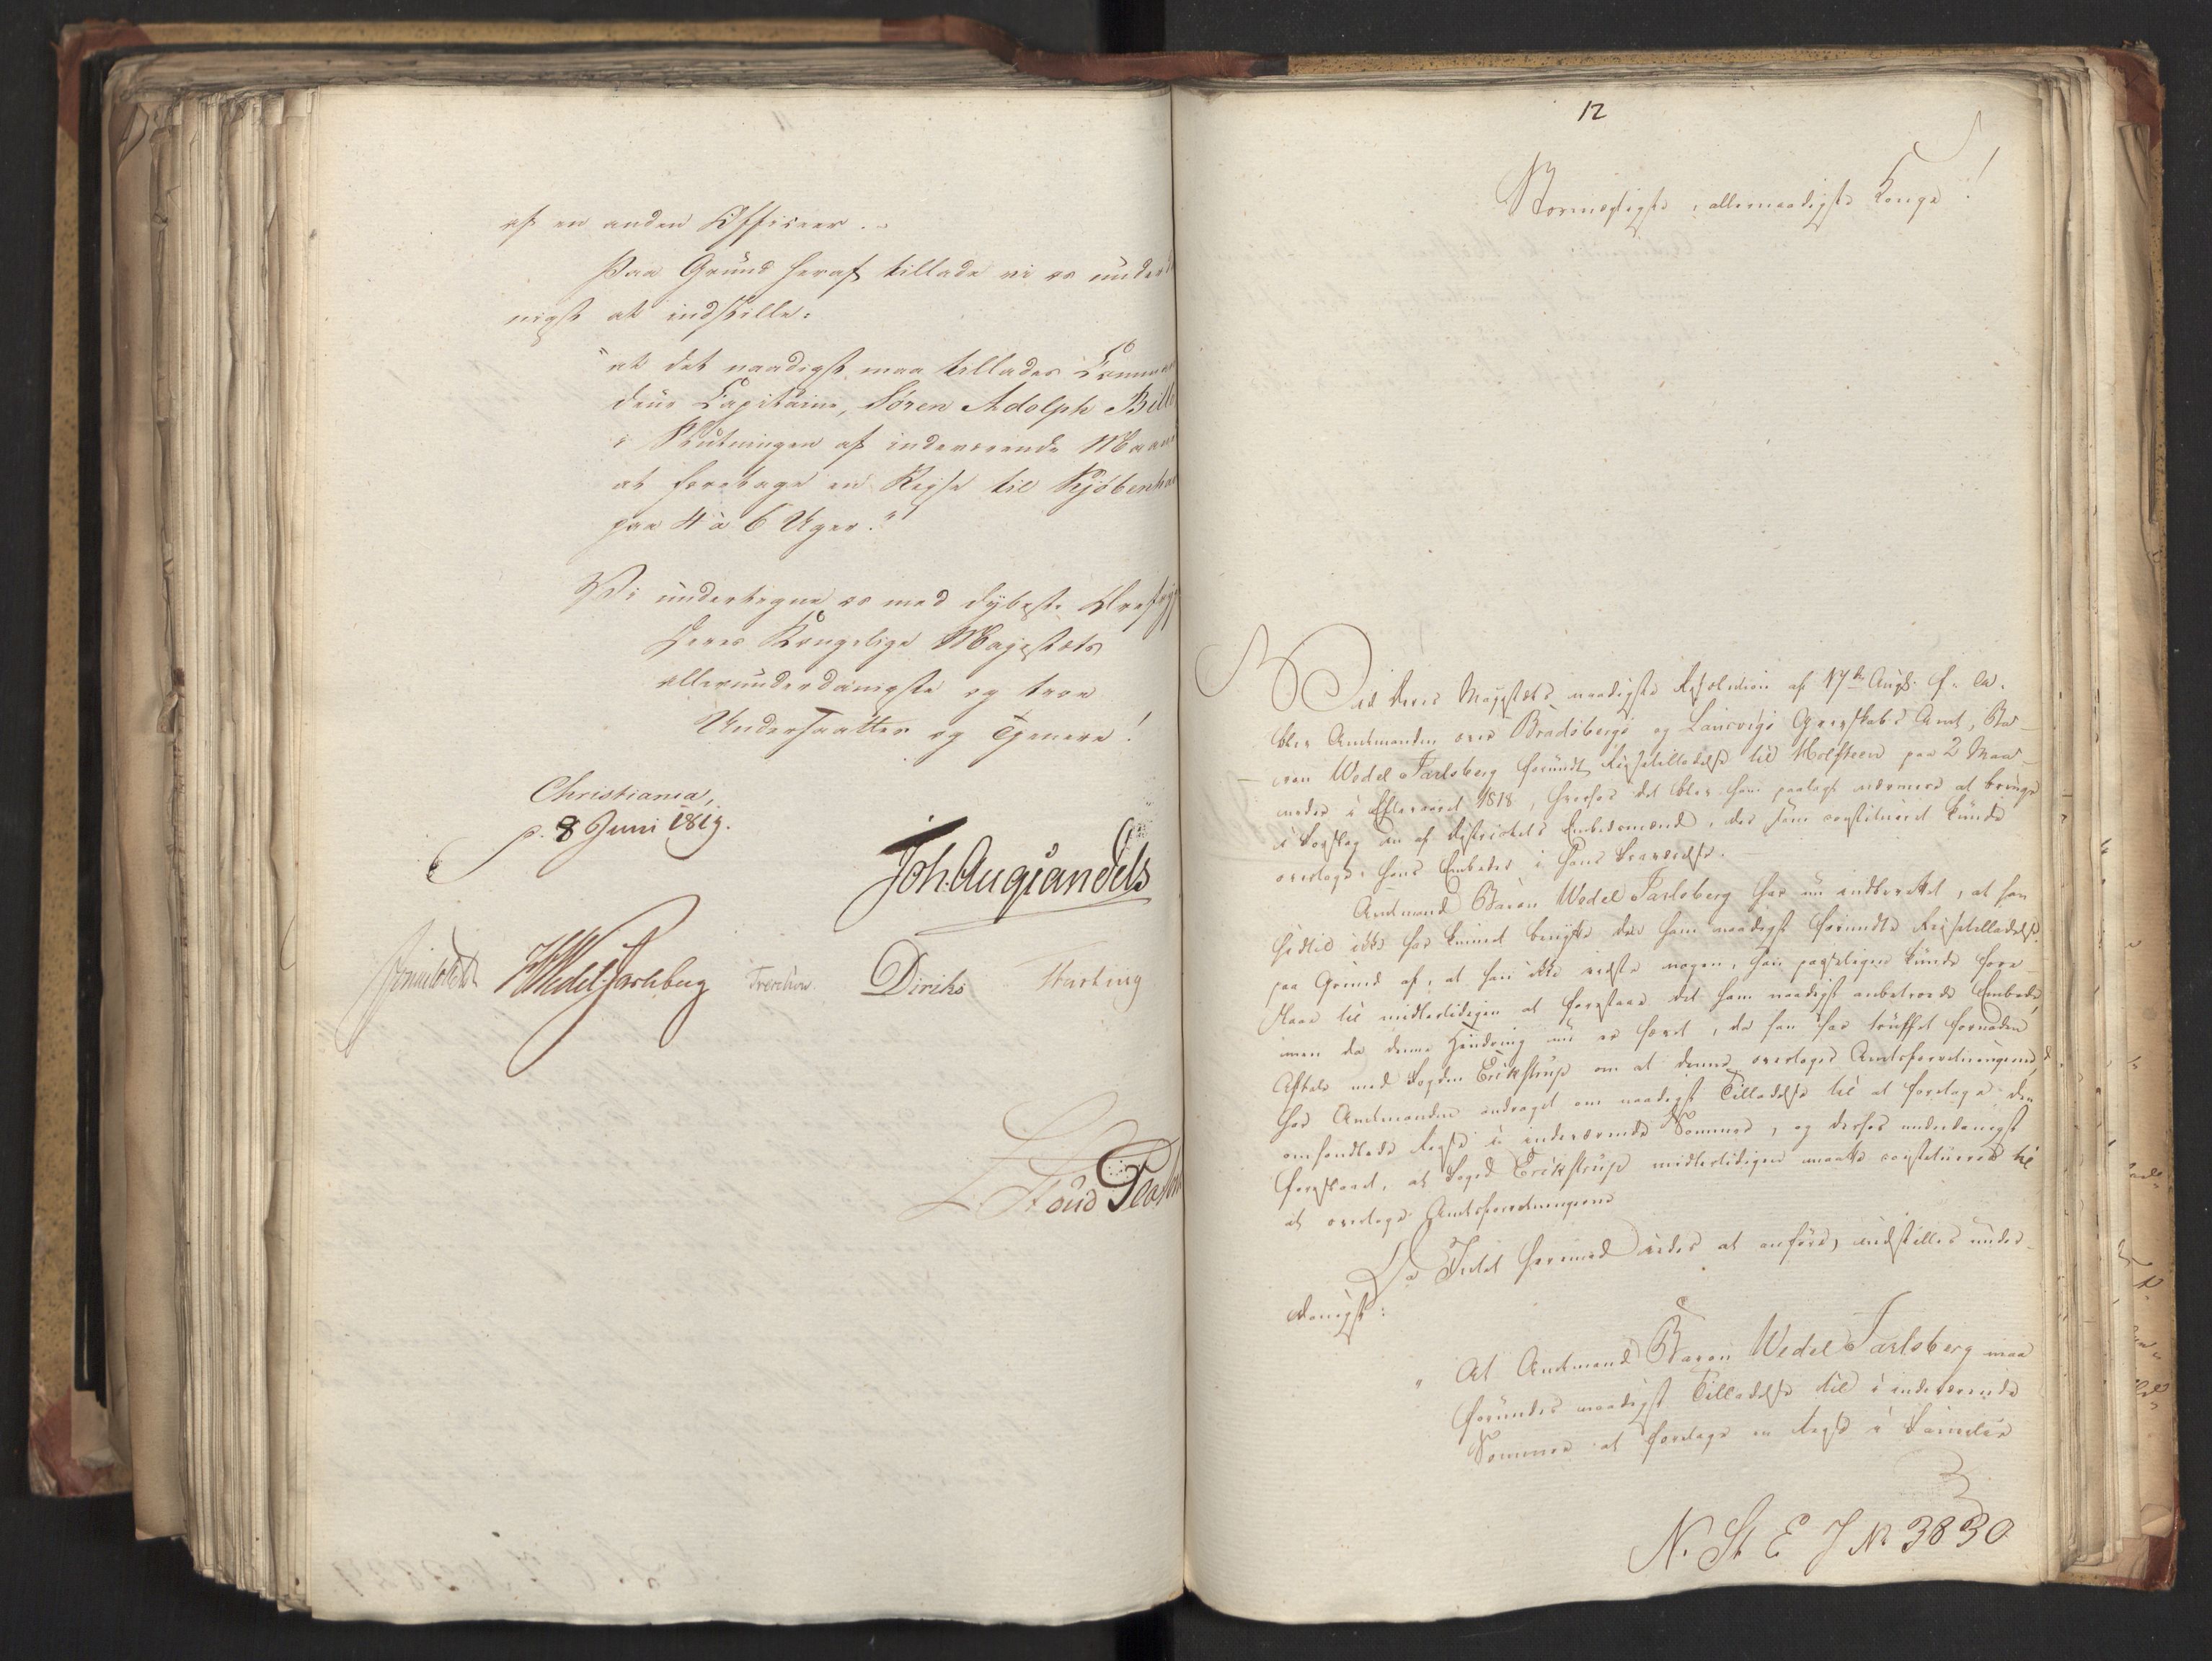 af en anden Officeer.
Paa Grund heraf tillade vi os underd
nigst at indstille:
"at det naadigst maa tillades Comman
deur Capitaine, Sören Adolph Bille
i Slutningen af indeværende Maaned
at foretage en Rejse til Kjöbenhav
paa 4 à 6 Uger."
Vi undertegne os med dybeste Ærefrygt
Deres Kongelige Majestæts
allerunderdanigste og troe
Undersaatter og Tjenere!
Christiania,
d. 8 Juni 1819.
Joh. Aug Sandels
Sommerhielm HWedel Jarlsberg Treschow Diriks Hartvig
L. Stoud Platou
12
Stormægtigste, allernaadigste Konge!
Ved Deres Majestæts naadigste Resolution af 17de Augt f. A.
blev Amtmanden over Bradsbergs og Laurvigs Grevskabs Amt, Ba-
ron Wedel Jarlsberg forundt Rejsetilladelse til Holsteen paa 2 Maa-
neder i Efteraaret 1818, hvorhos det blev ham paalagt nærmere at bringe
i Forslag en af Districtets Embedsmænd, der som constitueret kunde
overtage hans Embede i hans Fraværelse.
Amtmand Baron Wedel Jarlsberg har nu indberettet, at han
hidtil ikke har kunnet benytte den ham naadigst forundte Rejsetilladelse
paa Grund af, at han ikke vidste nogen, han passeligen kunde fore-
slaae til midlertidigen at forestaae det ham naadigst anbetroede Embede,
men da denne Hindring nu er hævet, da han har truffet fornøden
Aftale med Fogden Erikstrup om at denne overtager Amtsforretningerne,
har Amtmanden andraget om naadigst Tilladelse til at foretage den
omhandlede Rejse i indeværende Sommer, og derhos underdanigst
foreslaaet, at Foged Erikstrup midlertidigen maatte constitueres til
at overtage Amtsforretningerne
Da Intet herimod vides at anføre, indstilles under-
danigst:
"At Amtmand Baron Wedel Jarlsberg maa
forundes naadigst Tilladelse til i indeværende
Sommer at foretage en Rejse i Familie
N. St. E J No 3830